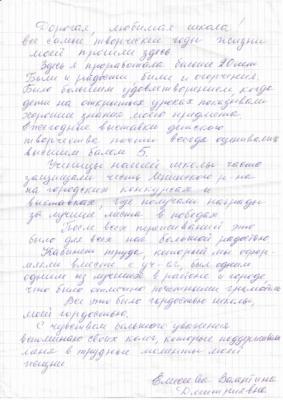 Дорогая, любимая школа!
все самые творческие годы жизни
моей прошли здесь.
Здесь я проработала больше 20 лет
Были и радости были и огорчения.
Было большим удовлетворением, когда
дети на открытых уроках показывали
хорошие знания моего предмета.
Ежегодные выставки детского
творчества почти всегда оценивались
высшим балом 5.
Ученицы нашей школы часто
защищали честь р-на
на городских конкурсах и
выставках, где получали награды
за лучшие места в победах
После всех переживаний это
было для всех нас большой радостью.
Кабинет труда, который мы офор-
мляли вместе с уч-ся, был одним
одним из лучших в районе и городе
что было отмечено почетными грамотами
Все это было гордостью школы,
моей гордостью.
С чувством большого уважения
вспоминаю своих коллег, которые поддерживали
меня в трудные моменты моей
жизни
Валентина
Дмитриевна